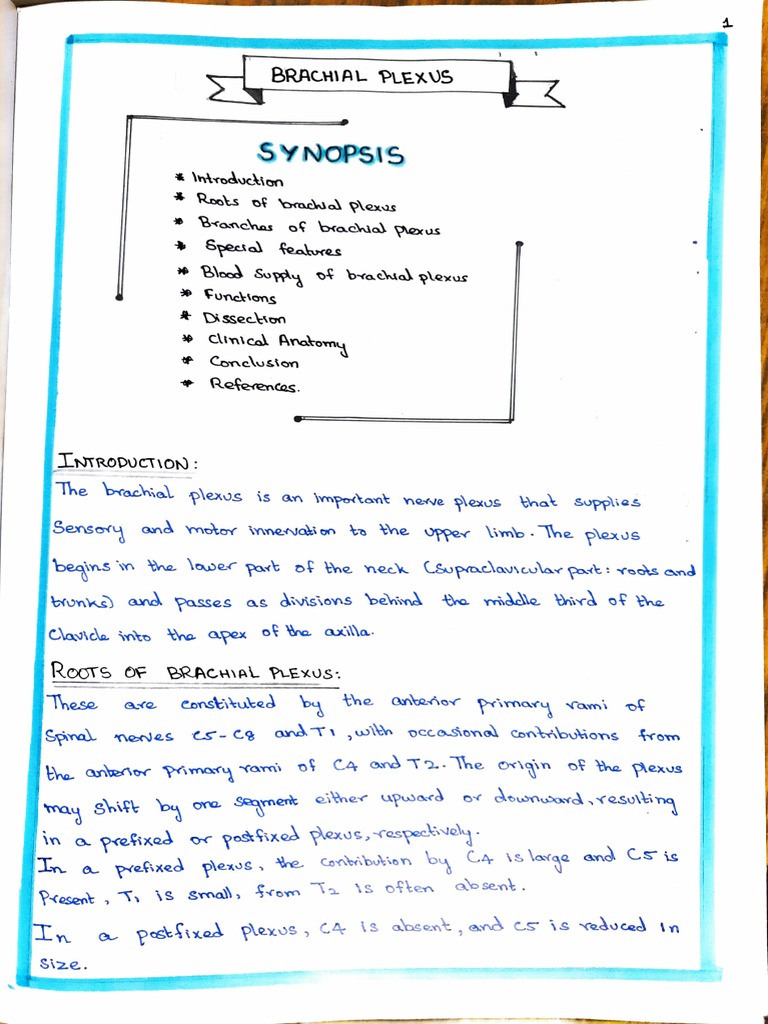 1
BRACHIAL PLEXUS
SYNOPSIS
* Introduction
* Roots of brachial plexus
* Branches of brachial plexus
* Special features
* Blood Supply of brachial plexus
* Functions
* Dissection
* Clinical Anatomy
* Conclusion
* References.
INTRODUCTION:
The brachial plexus is an important nerve plexus that supplies
Sensory and motor innervation to the upper limb. The plexus
begins in the lower part of the neck (supraclavicular part: roots and
trunks) and passes as divisions behind the middle third of the
Clavicle into the apex of the axilla.
ROOTS OF BRACHIAL PLEXUS:
These are constituted by the anterior primary rami of
Spinal nerves C5-C8 and T1, with occasional contributions from
the anterior primary rami of C4 and T2. The origin of the plexus
may Shift by one segment either upward or downward, resulting
in a prefixed or postfixed plexus, respectively.
In a prefixed plexus, the contribution by C4 is large and C5 is
Present, T1 is small, from T2 is often absent.
In a postfixed plexus, C4 is absent, and C5 is reduced in
Size.